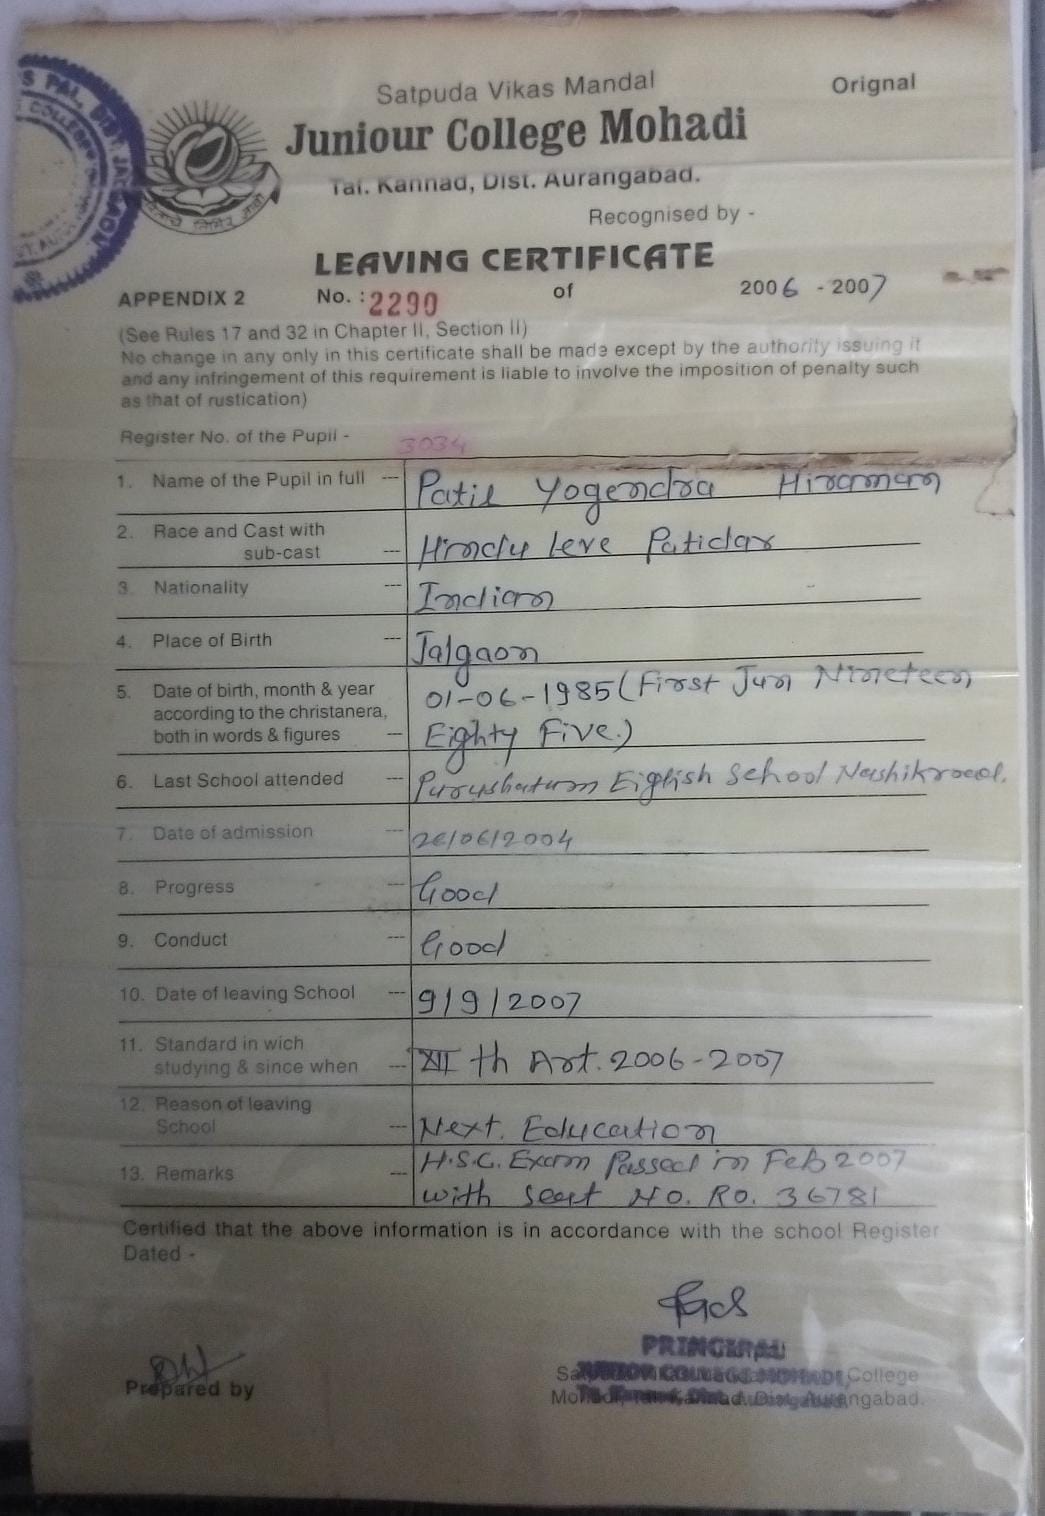 Satpuda Vikas Mandal
Orignal
Juniour College Mohadi
Tal. Kannad, Dist. Aurangabad.
Recognised by -
LEAVING CERTIFICATE
APPENDIX 2 No. : 2290 of 2006 - 2007
(See Rules 17 and 32 in Chapter II, Section II)
No change in any only in this certificate shall be made except by the authority issuing it
and any infringement of this requirement is liable to involve the imposition of penalty such
as that of rustication)
Register No. of the Pupil - 3034
1. Name of the Pupil in full --- Patil Yogendra Hiraman
2. Race and Cast with
sub-cast --- Hindu leve Patidar
3. Nationality --- Indian
4. Place of Birth --- Jalgaon
5. Date of birth, month & year
according to the christanera,
both in words & figures ---
01-06-1985 (First Jun Nineteen
Eighty Five.)
6. Last School attended --- Purushatum Eiglish School Nashikroad.
7. Date of admission --- 26/06/2004
8. Progress --- Good
9. Conduct --- Good
10. Date of leaving School --- 9/9/2007
11. Standard in wich
studying & since when --- XII th Art. 2006-2007
12. Reason of leaving
School --- Next. Education
13. Remarks --- H.S.C. Exam Passed in Feb 2007
with seat NO. RO. 36781
Certified that the above information is in accordance with the school Register
Dated -
PRINCIPAL
JUNIOR COLLEGE MOHADI, College
Aurangabad.
Prepared by